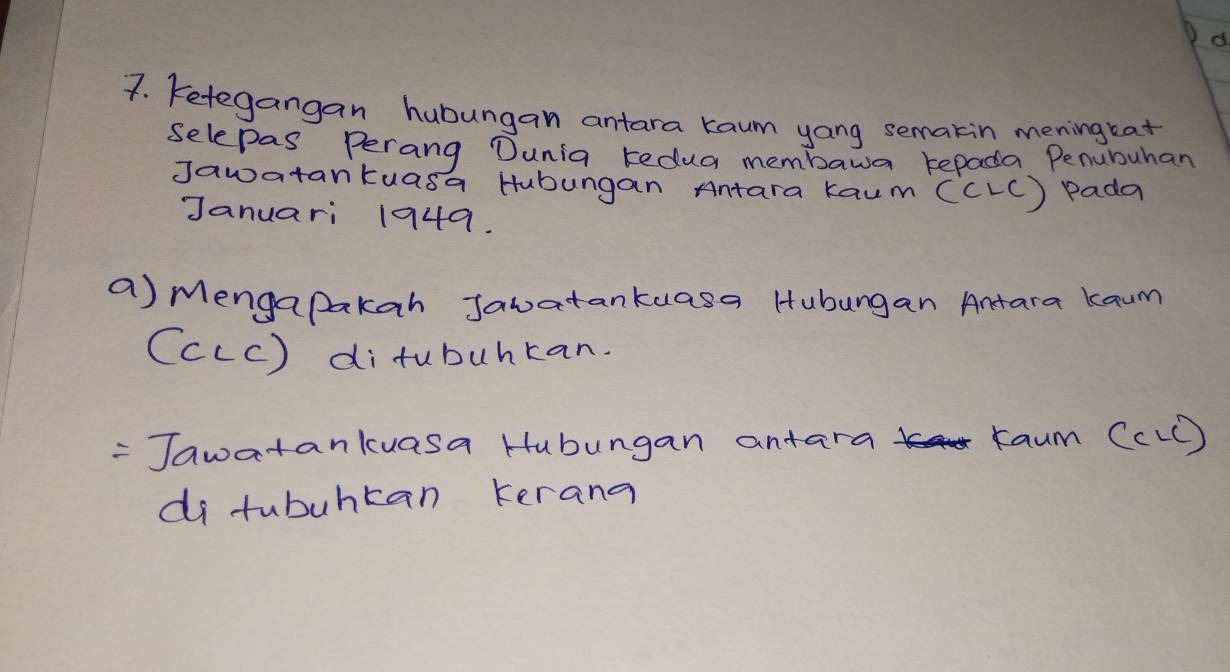 7. Ketegangan hubungan antara kaum yang semakin meningkat
selepas Perang Dunia kedua membawa kepada Penubuhan
Jawatankuasa Hubungan Antara Kaum (CLC) pada
Januari 1949.
a) Mengapakah Jawatankuasa Hubungan Antara kaum
(CLC) ditubuhkan.
= Jawatankuasa Hubungan antara kaum (CLC)
ditubuhkan kerana